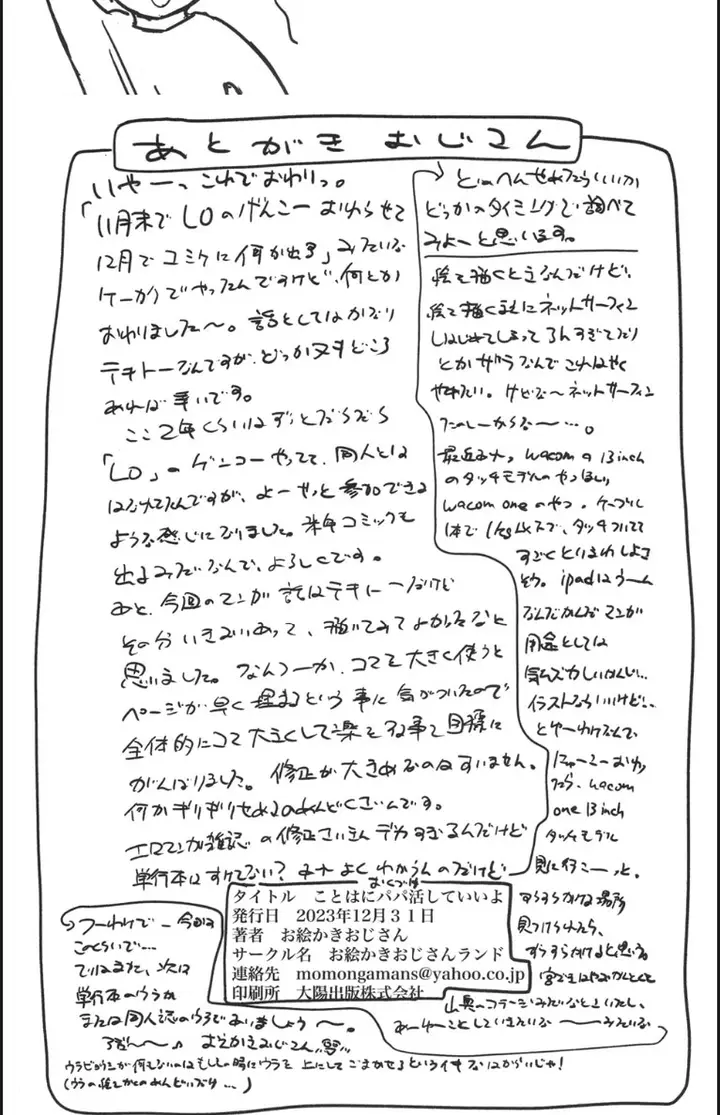 あとがき おじさん
いやーっ これでおわりっ。
「11月末で LOのげんこー おわらせて
12月で コミケに何か出す」みたいな
ケーカクでやったんですけど、何とか
おわりました〜。話としてはかなり
テキトーなんですが、どっか又すどころ
あれば幸いです。
ここ2年くらいはずっとだらだら
「LO」のゲンコーやってて、同人とは
はなれてたんですが、よーやっと参加できる
ような感じになりました。来年コミックも
出るみたいなんで、よろしくです。
あと、今回のマンガ 話はテキトーだけど
その分いきおいあって、描いてみてよかったなと
思いました。なんつーか、コマを大きく使うと
ページが早く埋まるという事に気がついたので
全体的にコマ大きくして楽をする事を目標に
がんばりました。修正が大きめなのはすいません。
何かギリギリせめるのめんどくさいんです。
エロマンガ雑誌の修正さいきんデカすぎるんだけど
単行本はすけてない？ よくわからんのだけど
どのへんせめたらいいか
どっかのタイミングで調べて
みよーと思います。
絵を描くと立なんだけど、
絵を描くまえにネットサーフィン
しはじめてしまって
とかザラなんでこれはやく
やめたい。けどな〜ネットサーフィン
たのしーからな〜…。
最近みた、wacomの13inch
のタッチモデルのやつほしい
wacom oneのやつ。ケーブル
1本で1kg以下で、タッチついてて
すごくといまわしよさ
そう。ipadはうーん
なんだかんだマンガ
用途としては
気ムズカしいかんじ…
イラストならいいけど…
とゆーわけなんで
にゅーこーおわっ
たら、wacom
one 13inch
タッチモデル
見に行こーっと。
すらすらかける場所
見つけられたら、
すらすらかけると思う。
つーわけで 今回は
このくらいで…
ではまた、次は
単行本のウラか
または同人誌のウラであいましょう〜。
おえかきおじさん
タイトル ことはにパパ活していいよ
発行日 2023年12月31日
著者 お絵かきおじさん
サークル名 お絵かきおじさんランド
連絡先 momongamans@yahoo.co.jp
印刷所 大陽出版株式会社
ウラビョウシが何もないのはもしもの時にウラを上にしてごまかせるというイキなはからいじゃ!